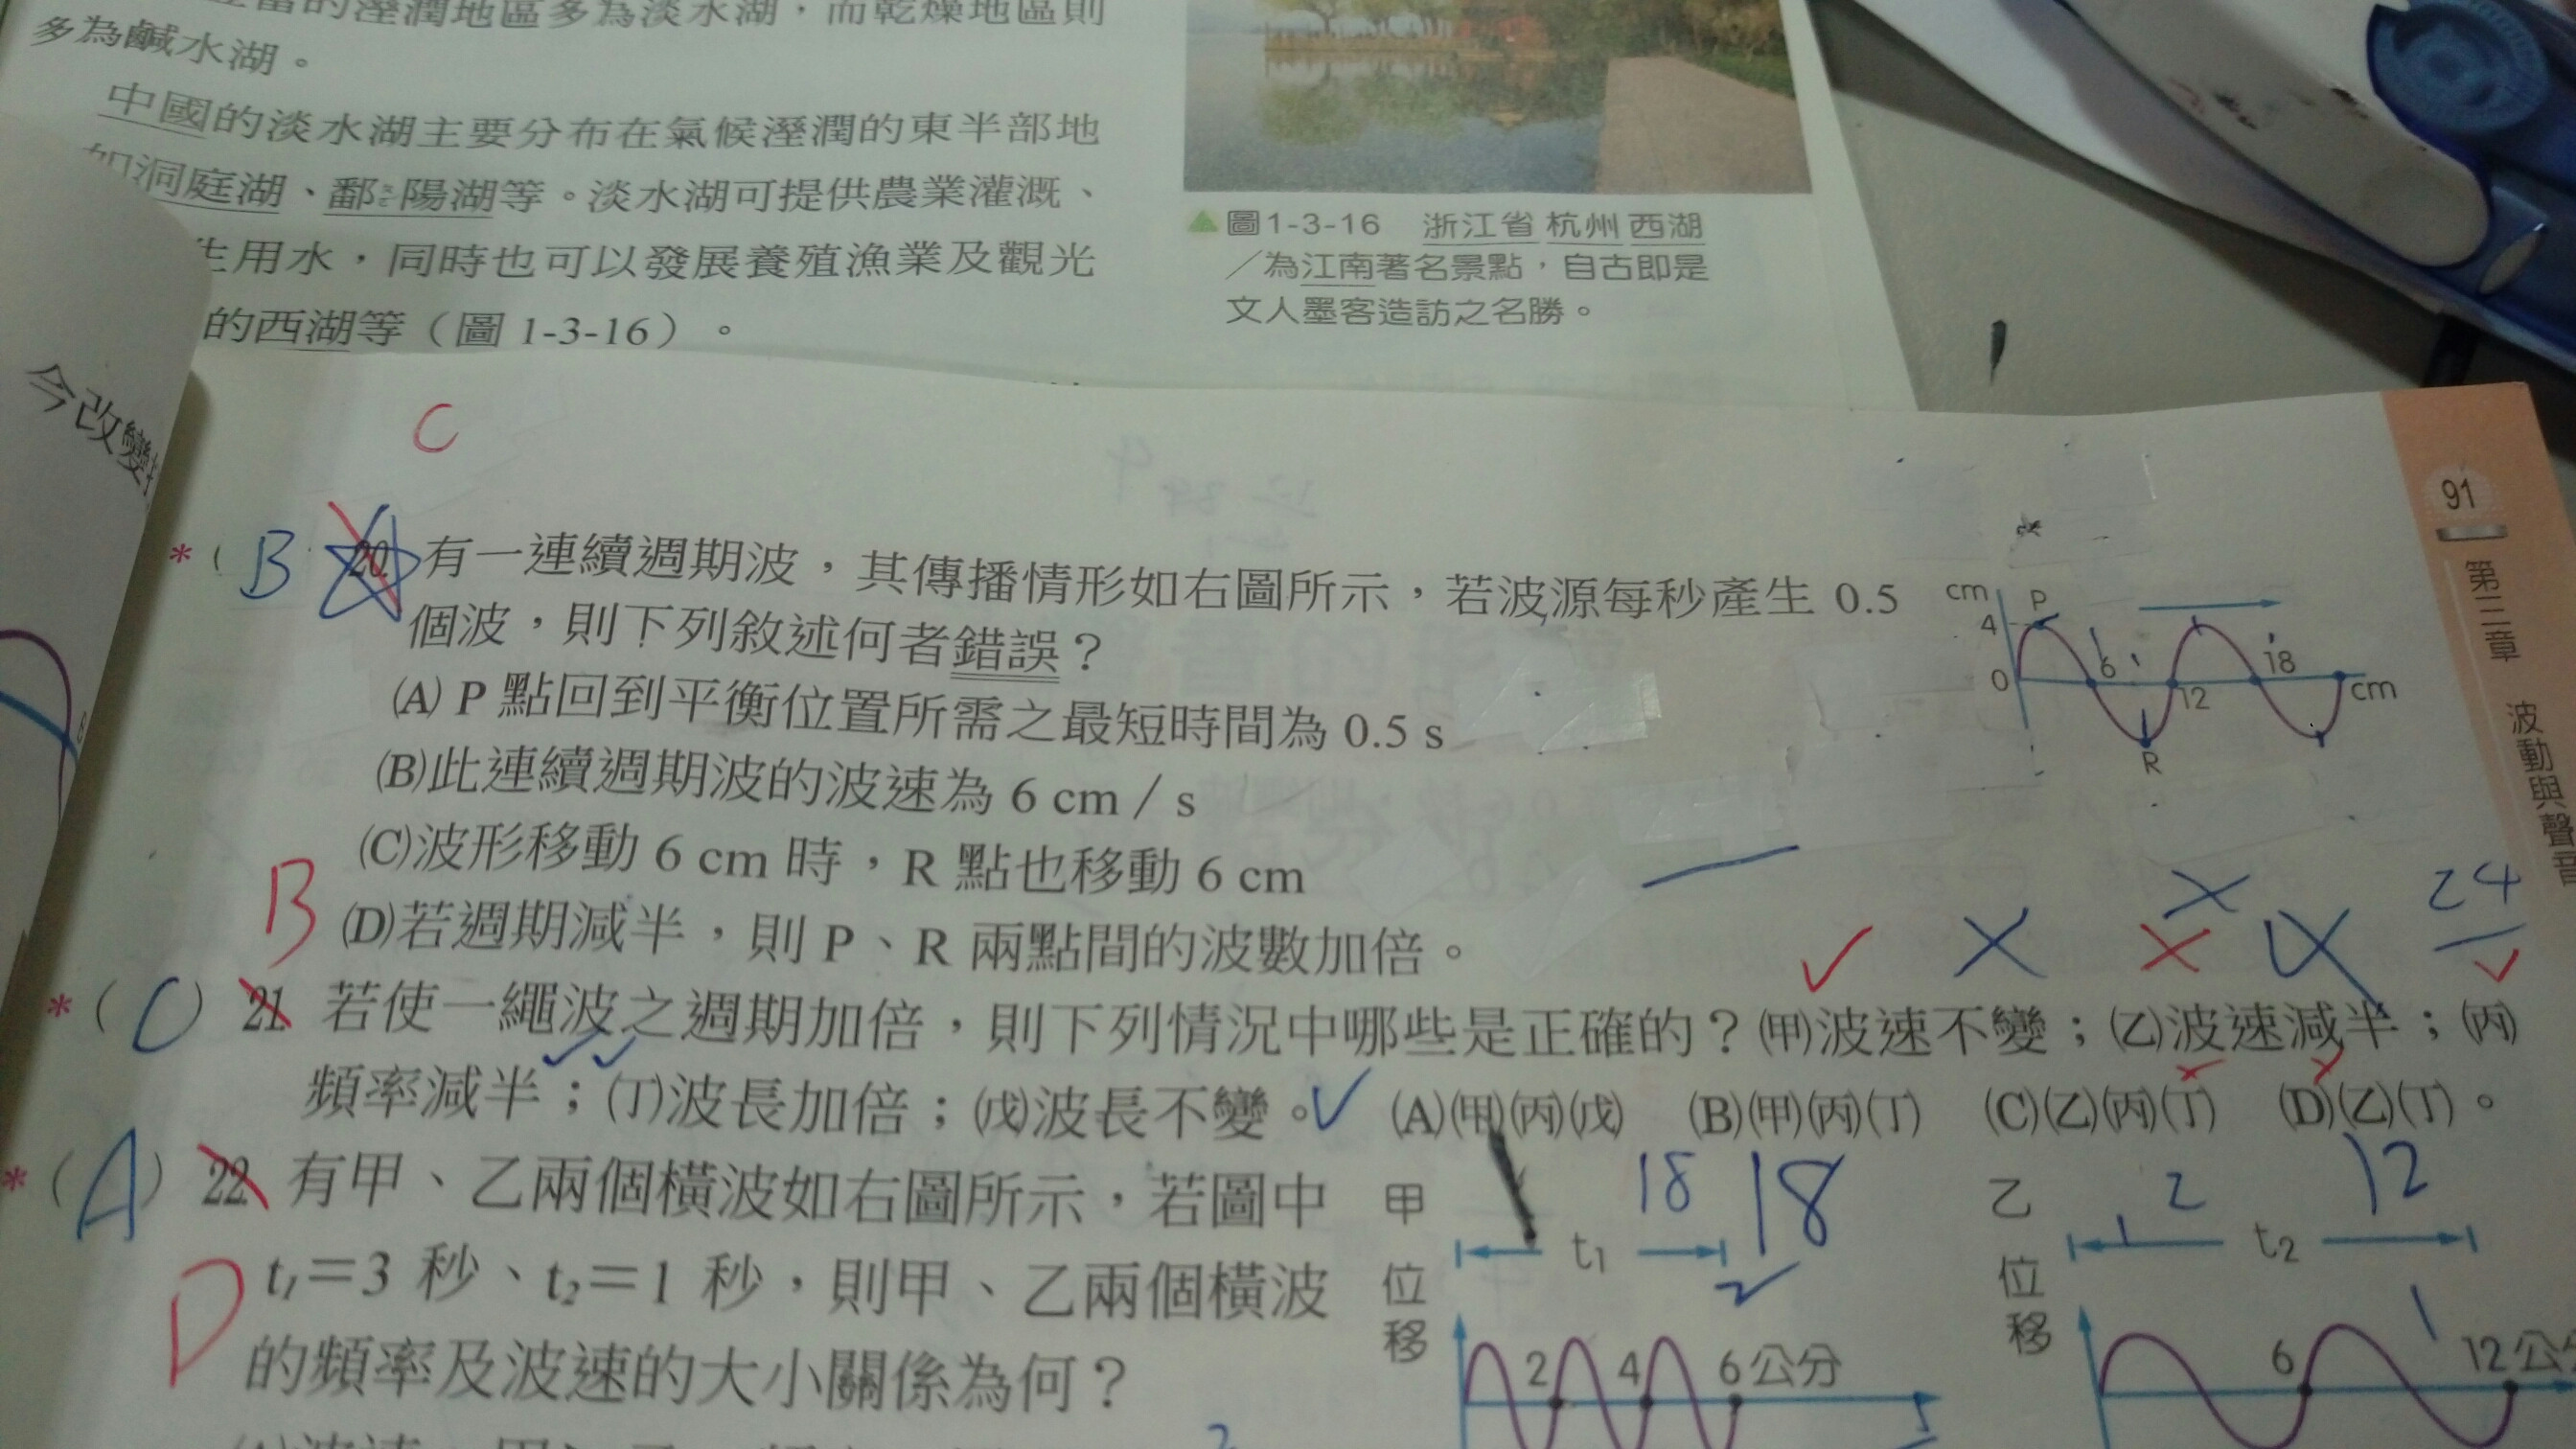 的溼潤地區多為淡水湖,而乾燥地區則
多為鹹水湖。
中國的淡水湖主要分布在氣候溼潤的東半部地
如洞庭湖、鄱陽湖等。淡水湖可提供農業灌溉、
生用水,同時也可以發展養殖漁業及觀光
的西湖等(圖 1-3-16)。
圖1-3-16 浙江省 杭州 西湖
/為江南著名景點,自古即是
文人墨客造訪之名勝。
今改變
91
第三章 波動與聲音
C
*( B 20. 有一連續週期波,其傳播情形如右圖所示,若波源每秒產生 0.5
個波,則下列敘述何者錯誤?
(A) P 點回到平衡位置所需之最短時間為 0.5 s
(B)此連續週期波的波速為 6 cm/s
(C)波形移動 6 cm 時,R 點也移動 6 cm
(D)若週期減半,則 P、R 兩點間的波數加倍。
cm
P
4
0
6
12
18
cm
R
B
24
*( C ) 21. 若使一繩波之週期加倍,則下列情況中哪些是正確的?(甲)波速不變;(乙)波速減半;(丙)
頻率減半;(丁)波長加倍;(戊)波長不變。 (A)(甲)(丙)(戊) (B)(甲)(丙)(丁) (C)(乙)(丙)(丁) (D)(乙)(丁)。
*( A ) 22. 有甲、乙兩個橫波如右圖所示,若圖中
t₁=3 秒、t₂=1 秒,則甲、乙兩個橫波
的頻率及波速的大小關係為何?
D
甲
位移
18
18
t₁
2 4 6 公分
乙
位移
2
12
t₂
6 12 公分